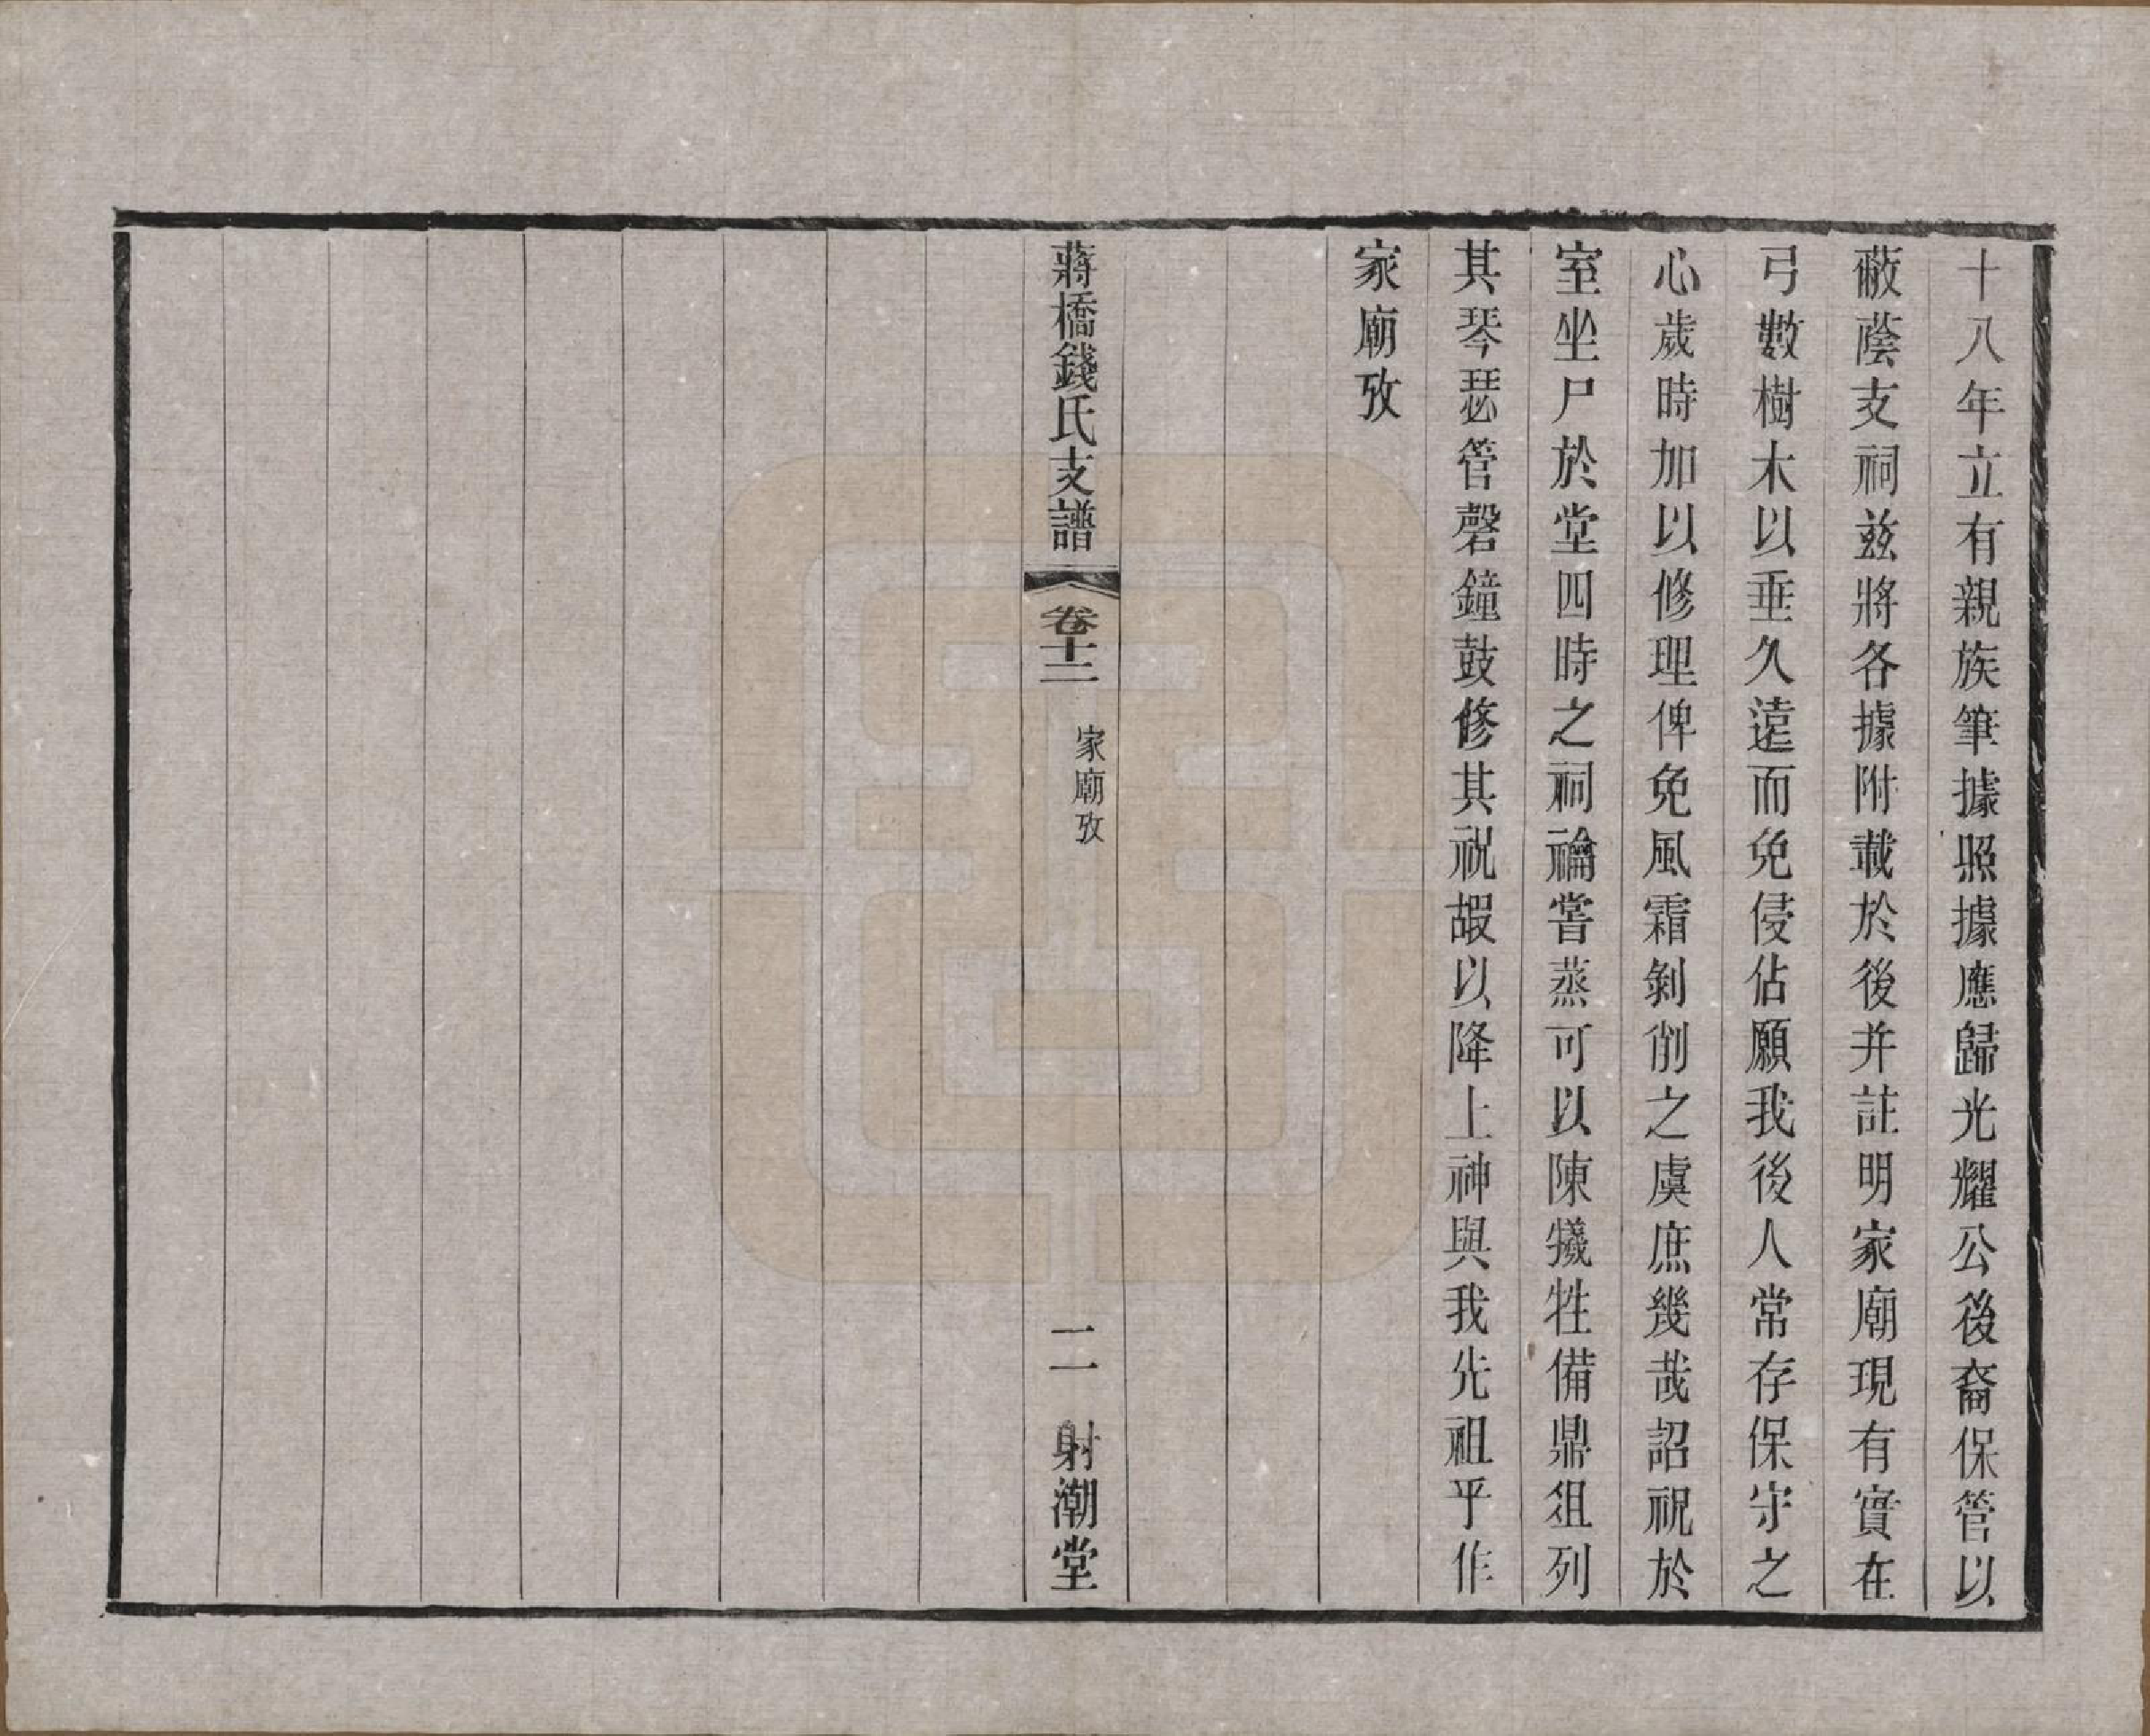 十八年立有親族筆據照據應歸光耀公後裔保管以
蔽蔭支祠兹將各據附載於後并註明家廟現有實在
弓數樹木以垂久遠而免侵佔願我後人常存保守之
心歲時加以修理俾免風霜剝削之虞庶幾哉詔祝於
室坐尸於堂四時之祠禴嘗蒸可以陳犧牲備鼎俎列
其琴瑟管磬鐘鼓修其祝嘏以降上神與我先祖乎作
家廟攷
蔣橋錢氏支譜 卷十二 家廟攷 二 射潮堂